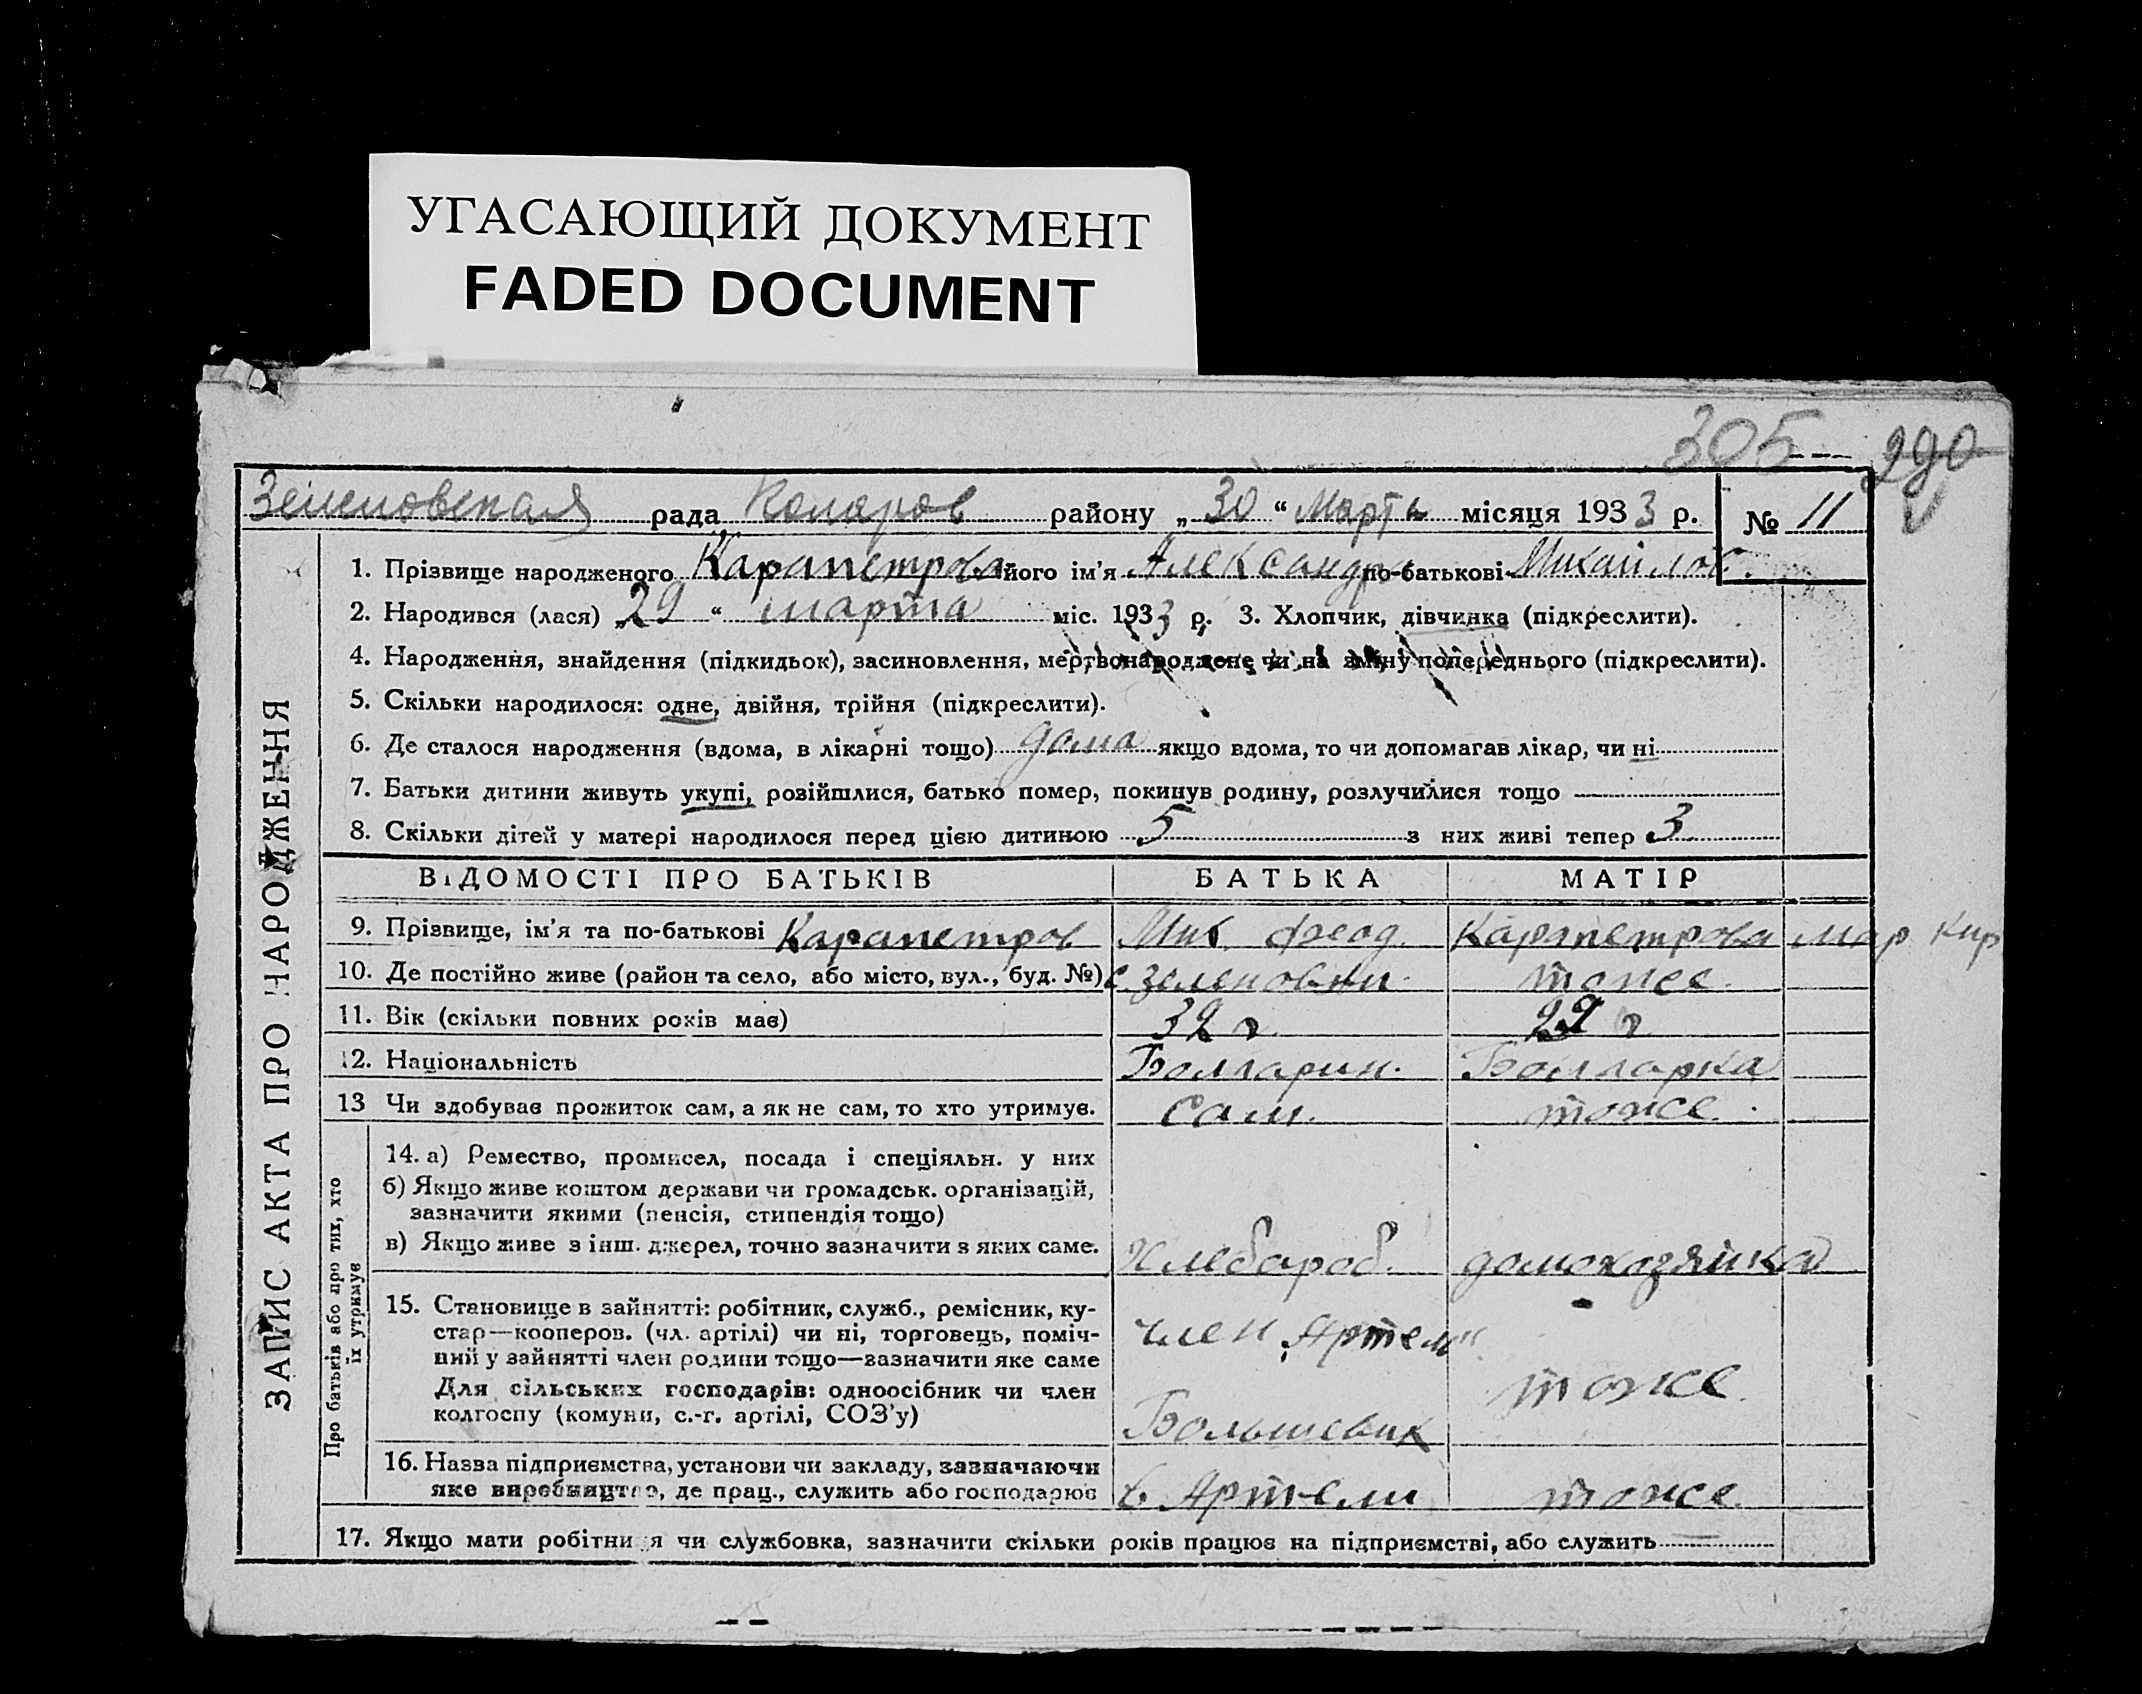 УГАСАЮЩИЙ ДОКУМЕНТ
FADED DOCUMENT
305 290
Зеленовская рада Коларов району „30“ Марта місяця 1933 р. № 11
1. Прізвище народженого Карапетрова його ім'я Александра по-батькові Михайлов.
2. Народився (лася) „29“ марта міс. 1933 р. 3. Хлопчик, дівчинка (підкреслити).
4. Народження, знайдення (підкидьок), засиновлення, мертвонароджене чи на зміну попереднього (підкреслити).
5. Скільки народилося: одне, двійня, трійня (підкреслити).
6. Де сталося народження (вдома, в лікарні тощо) дома якщо вдома, то чи допомагав лікар, чи ні
7. Батьки дитини живуть укупі, розійшлися, батько помер, покинув родину, розлучилися тощо
8. Скільки дітей у матері народилося перед цією дитиною 5 з них живі тепер 3
ЗАПИС АКТА ПРО НАРОДЖЕННЯ
ВІДОМОСТІ ПРО БАТЬКІВ БАТЬКА МАТІР
9. Прізвище, ім'я та по-батькові Карапетров Мих. Феод. Карапетрова Мар Кир
10. Де постійно живе (район та село, або місто, вул., буд. №) с. Зеленовки. тоже.
11. Вік (скільки повних років має) 32 г. 29 г
12. Національність Болгарин. Болгарка
13 Чи здобуває прожиток сам, а як не сам, то хто утримує. Сам. тоже.
Про батьків або про тих, хто
їх утримує
14. а) Ремество, промисел, посада і спеціяльн. у них
б) Якщо живе коштом держави чи громадськ. організацій,
зазначити якими (пенсія, стипендія тощо)
в) Якщо живе з інш. джерел, точно зазначити з яких саме. Хлебороб. домохозяйка
15. Становище в зайнятті: робітник, служб., ремісник, ку-
стар—кооперов. (чл. артілі) чи ні, торговець, поміч- член „Артели“
ний у зайнятті член родини тощо—зазначити яке саме
Для сільських господарів: одноосібник чи член тоже.
колгоспу (комуни, с.-г. артілі, СОЗ'у) Большевик
16. Назва підприємства, установи чи закладу, зазначаючи
яке виробництво, де прац., служить або господарює в Артели тоже.
17. Якщо мати робітниця чи службовка, зазначити скільки років працює на підприємстві, або служить